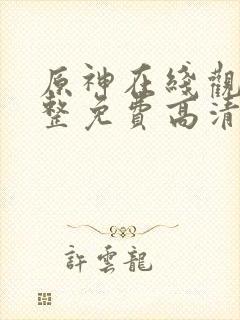 原神在綫觀
整免費高清
許雲龍